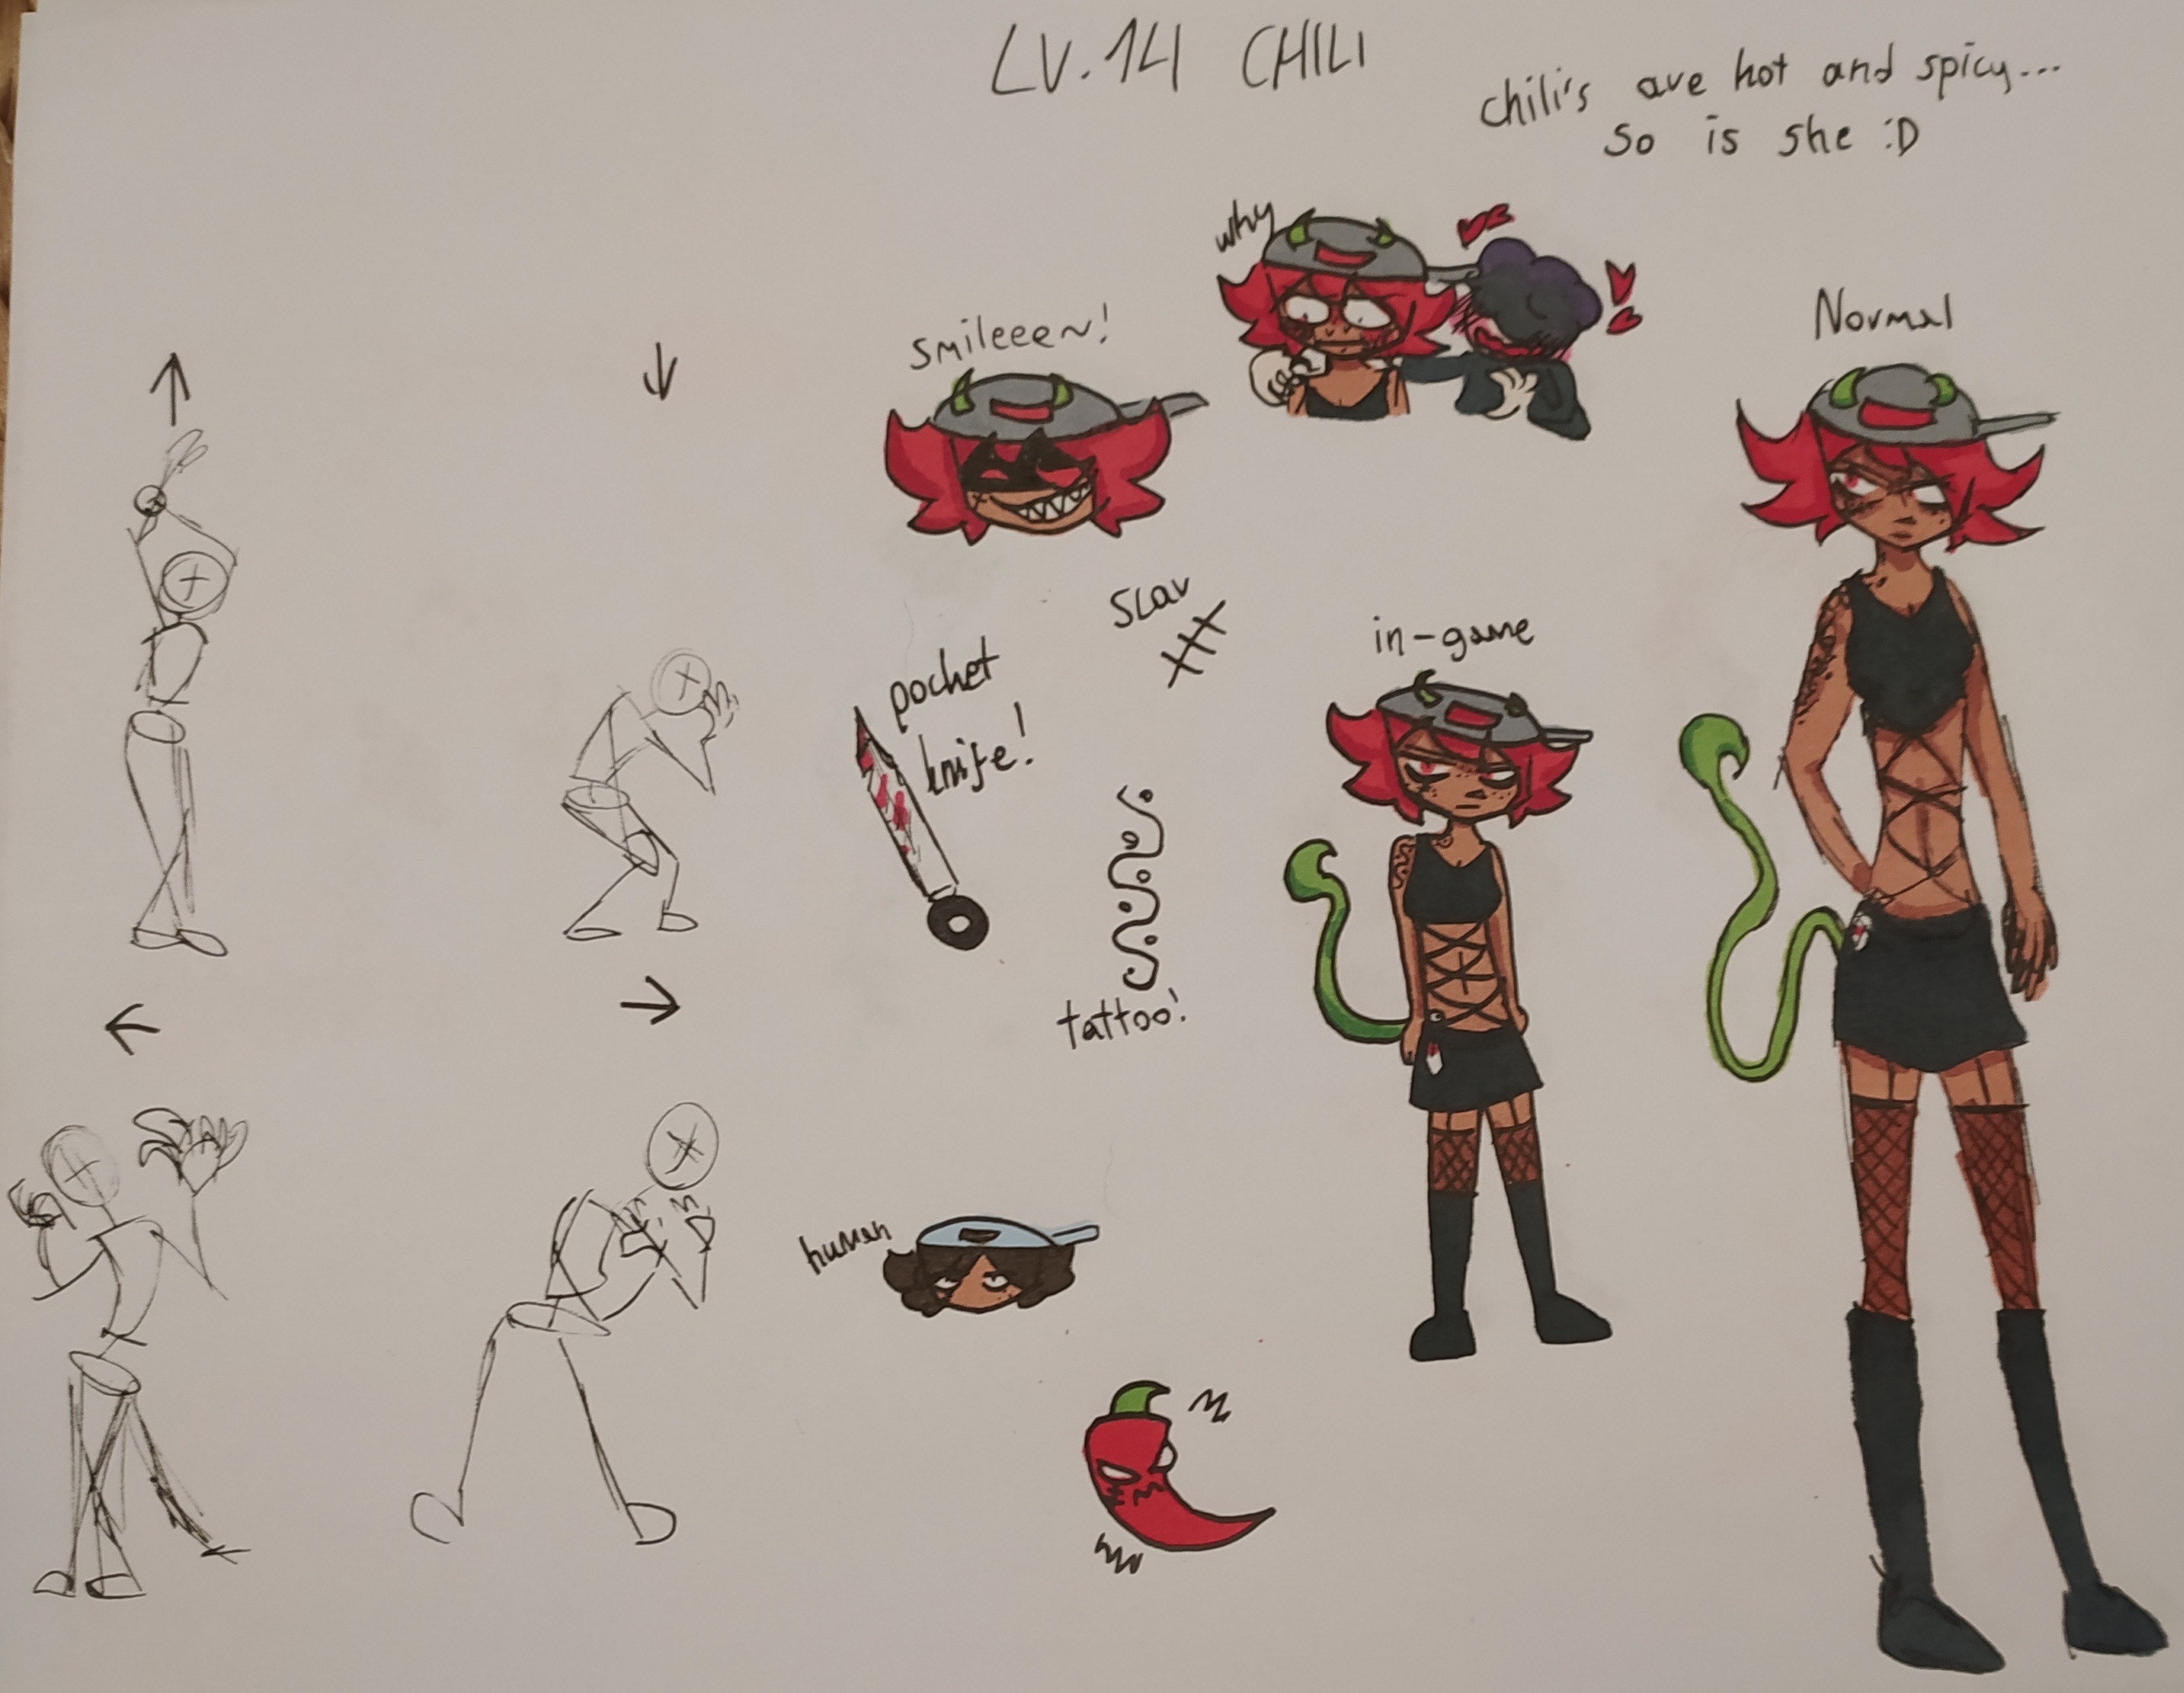 LV.14 CHILI
chili's are hot and spicy...
So is she :D
why
smileeen!
Normal
scar
pocket
knife!
in-game
tattoo!
human